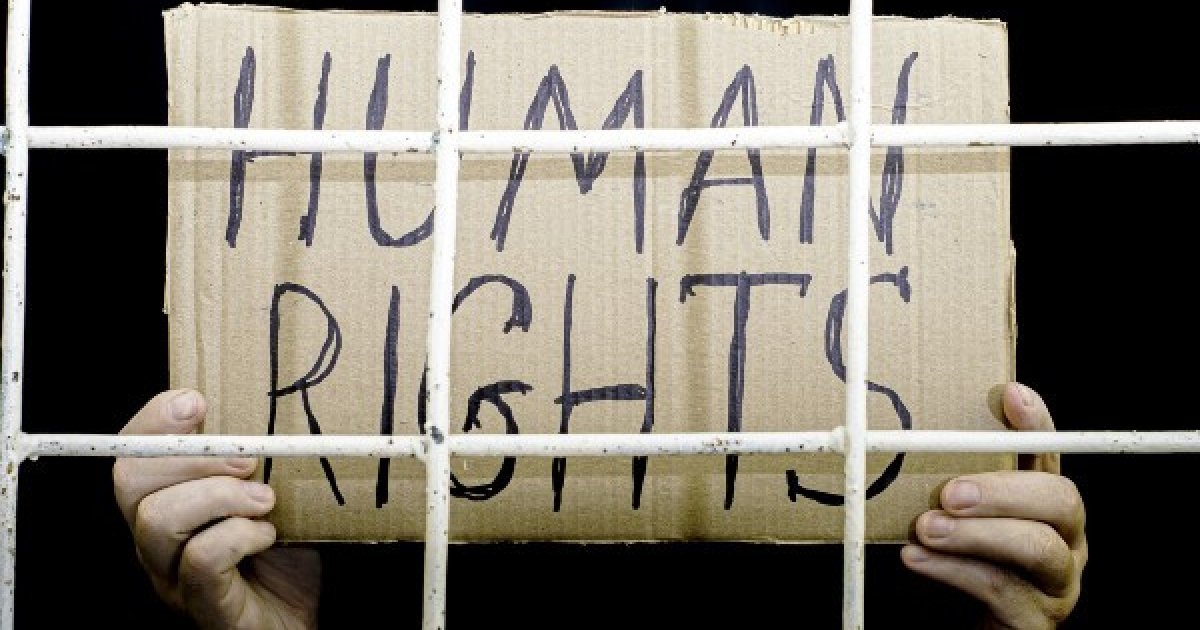 HUMAN
RIGHTS